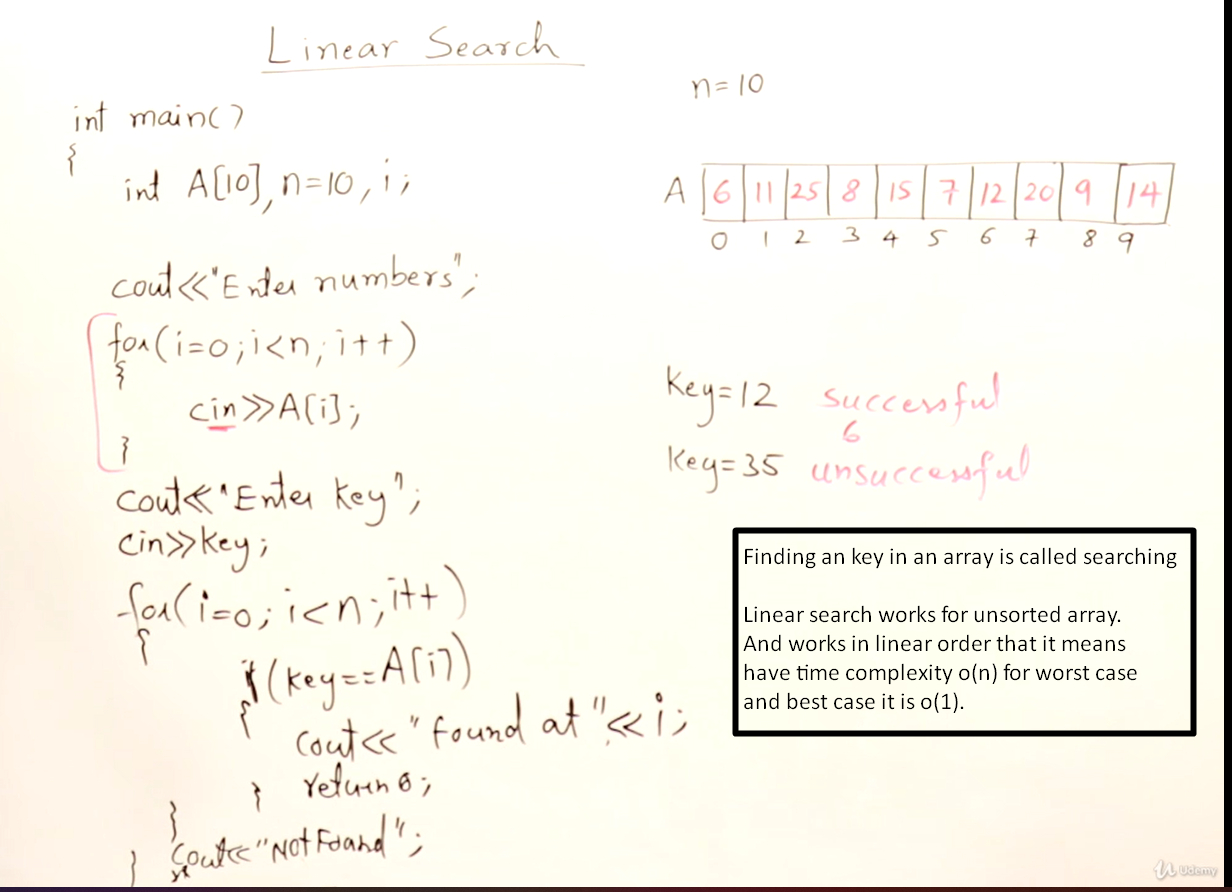 Linear Search
int main()
{
int A[10], n=10, i;
cout<<"Enter numbers";
for(i=0; i<n; i++)
{
cin>>A[i];
}
cout<<"Enter key";
cin>>key;
for(i=0; i<n; i++)
{
if(key==A[i])
{
cout<<"found at"<<i;
return 0;
}
}
cout<<"Not Found";
}
n=10
A 6 11 25 8 15 7 12 20 9 14
0 1 2 3 4 5 6 7 8 9
Key=12 successful
6
Key=35 unsuccessful
Finding an key in an array is called searching
Linear search works for unsorted array.
And works in linear order that it means
have time complexity o(n) for worst case
and best case it is o(1).
Udemy